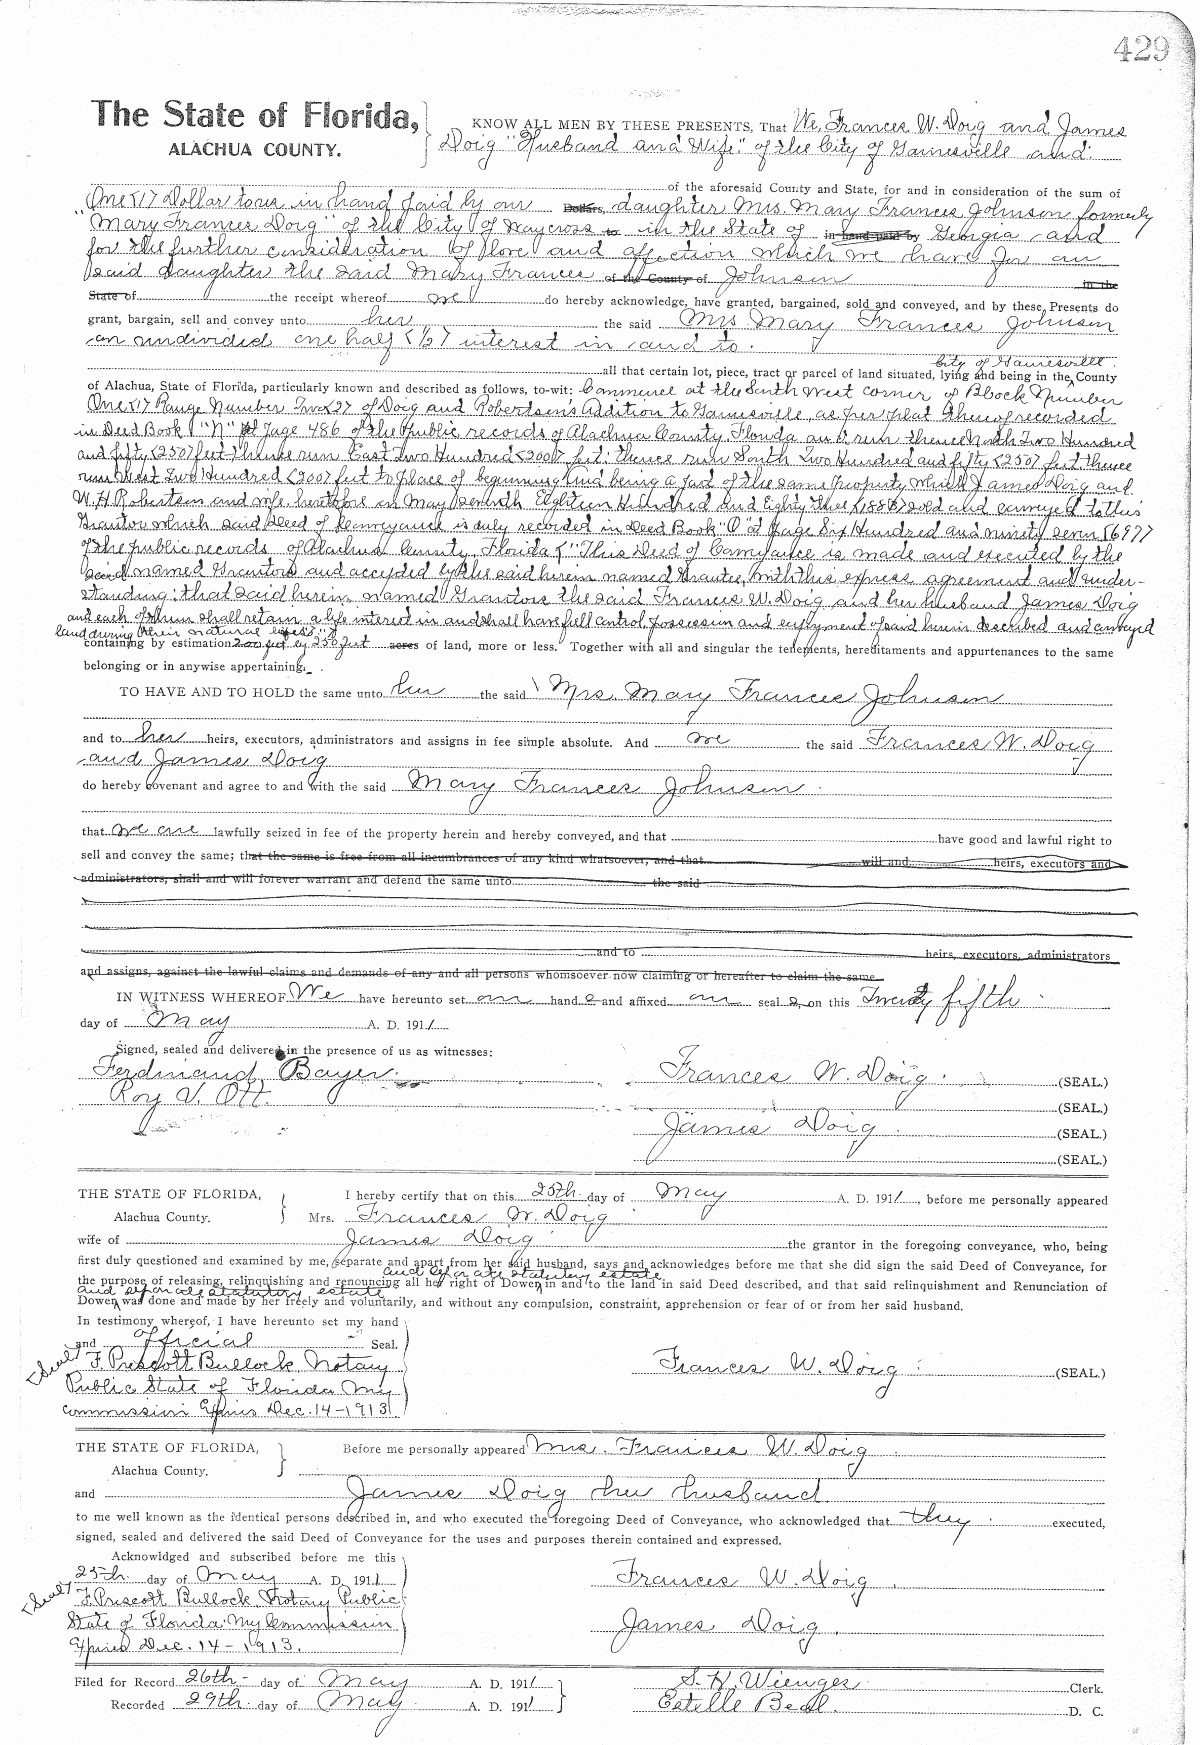 429
The State of Florida,
ALACHUA COUNTY.
KNOW ALL MEN BY THESE PRESENTS, That We, Frances W. Doig and James
Doig "Husband and Wife" of the City of Gainesville and
of the aforesaid County and State, for and in consideration of the sum of
One <1> Dollar to us in hand paid by our Dollars, daughter Mrs. Mary Frances Johnson formerly
"Mary Frances Doig" of the City of Waycross to in the State of in hand paid by Georgia and
for the further consideration of love and affection which we have for our
said daughter the said Mary Frances of the County of Johnson in the
State of the receipt whereof we do hereby acknowledge, have granted, bargained, sold and conveyed, and by these Presents do
grant, bargain, sell and convey unto her the said Mrs Mary Frances Johnson
an undivided one half <1/2> interest in and to.
City of Gainesville
all that certain lot, piece, tract or parcel of land situated, lying and being in the County
of Alachua, State of Florida, particularly known and described as follows, to-wit: Commence at the South West corner of Block Number
One <1> Range Number Two <2> of Doig and Robertson's Addition to Gainesville, as per plat thereof recorded
in Deed Book "N" at Page 486 of the Public records of Alachua County Florida and run thence North Two Hundred
and fifty <250> feet thence run East Two Hundred <200> feet: thence run South Two Hundred and fifty <250> feet thence
run West Two Hundred <200> feet to place of beginning and being a part of the same property which James Doig and
W. H. Robertson and wife, heretofore in May Seventh Eighteen Hundred and Eighty three <1883> sold and conveyed to this
Grantor which said Deed of Conveyance is duly recorded in Deed Book "O" at Page Six Hundred and ninety seven <697>
of the public records of Alachua County, Florida. "This Deed of Conveyance is made and executed by the
said named Grantors and accepted by the said herein named Grantee, with this express agreement and under-
standing: that said herein named Grantors the said Frances W. Doig and her husband James Doig
and each of them shall retain a life interest in and shall have full control, possession and enjoyment of said herein described and conveyed
land during their natural lifes"
containing by estimation 200 feet by 250 feet acres of land, more or less. Together with all and singular the tenements, hereditaments and appurtenances to the same
belonging or in anywise appertaining.
TO HAVE AND TO HOLD the same unto her the said Mrs. Mary Frances Johnson
and to her heirs, executors, administrators and assigns in fee simple absolute. And we the said Frances W. Doig
and James Doig
do hereby covenant and agree to and with the said Mary Frances Johnson
that we are lawfully seized in fee of the property herein and hereby conveyed, and that have good and lawful right to
sell and convey the same; that the same is free from all incumbrances of any kind whatsoever, and that will and heirs, executors and
administrators, shall and will forever warrant and defend the same unto the said
and to heirs, executors, administrators
and assigns, against the lawful claims and demands of any and all persons whomsoever now claiming or hereafter to claim the same.
IN WITNESS WHEREOF We have hereunto set our hand s and affixed our seal s, on this Twenty fifth
day of May A. D. 1911
Signed, sealed and delivered in the presence of us as witnesses:
Ferdinand Bayer.
Roy V. Ott.
Frances W. Doig. (SEAL.)
(SEAL.)
James Doig (SEAL.)
(SEAL.)
THE STATE OF FLORIDA,
Alachua County.
I hereby certify that on this 25th day of May A. D. 1911, before me personally appeared
Mrs. Frances W. Doig
wife of James Doig the grantor in the foregoing conveyance, who, being
first duly questioned and examined by me, separate and apart from her said husband, says and acknowledges before me that she did sign the said Deed of Conveyance, for
and separate statutory estate
the purpose of releasing, relinquishing and renouncing all her right of Dower in and to the land in said Deed described, and that said relinquishment and Renunciation of
and separate statutory estate
Dower was done and made by her freely and voluntarily, and without any compulsion, constraint, apprehension or fear of or from her said husband.
In testimony whereof, I have hereunto set my hand
and official Seal.
<Seal> F. Prescott Bullock Notary
Public State of Florida My
commission Expires Dec. 14-1913
Frances W. Doig (SEAL)
THE STATE OF FLORIDA,
Alachua County.
Before me personally appeared Mrs. Frances W. Doig
and James Doig her husband
to me well known as the identical persons described in, and who executed the foregoing Deed of Conveyance, who acknowledged that they executed,
signed, sealed and delivered the said Deed of Conveyance for the uses and purposes therein contained and expressed.
Acknowldged and subscribed before me this
25th. day of May A. D. 1911
<Seal> F. Prescott Bullock. Notary Public
State of Florida My Commission
Expires Dec. 14-1913.
Frances W. Doig
James Doig.
Filed for Record 26th day of May A. D. 1911
Recorded 29th day of May A. D. 1911
S. H. Wienges Clerk.
Estelle Beal. D. C.